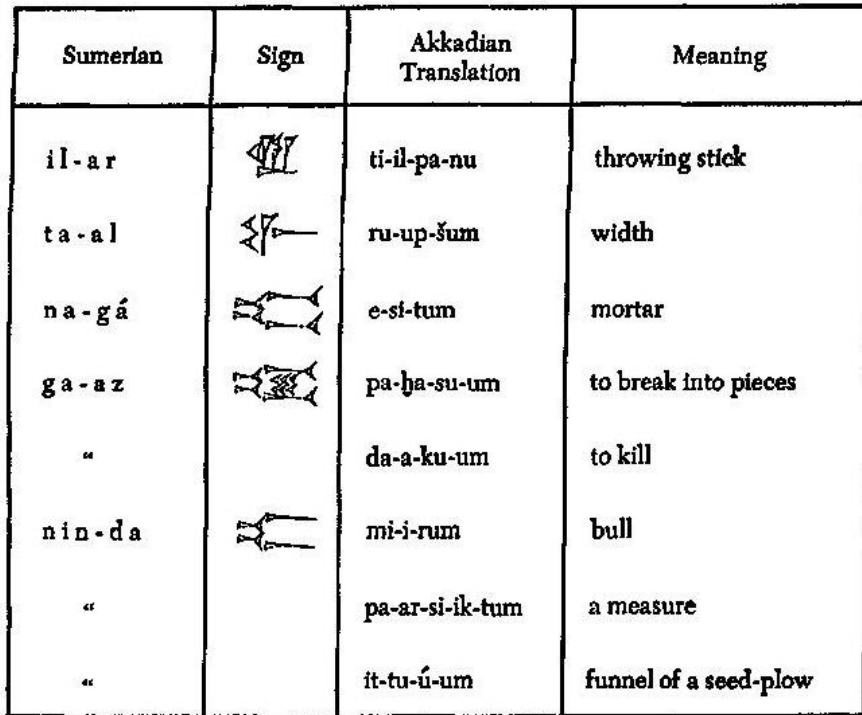 Sumerian Sign Akkadian Translation Meaning
il-ar ti-il-pa-nu throwing stick
ta-al ru-up-šum width
na-gá e-si-tum mortar
ga-az pa-ḫa-su-um to break into pieces
“ da-a-ku-um to kill
nin-da mi-i-rum bull
“ pa-ar-si-ik-tum a measure
“ it-tu-ú-um funnel of a seed-plow